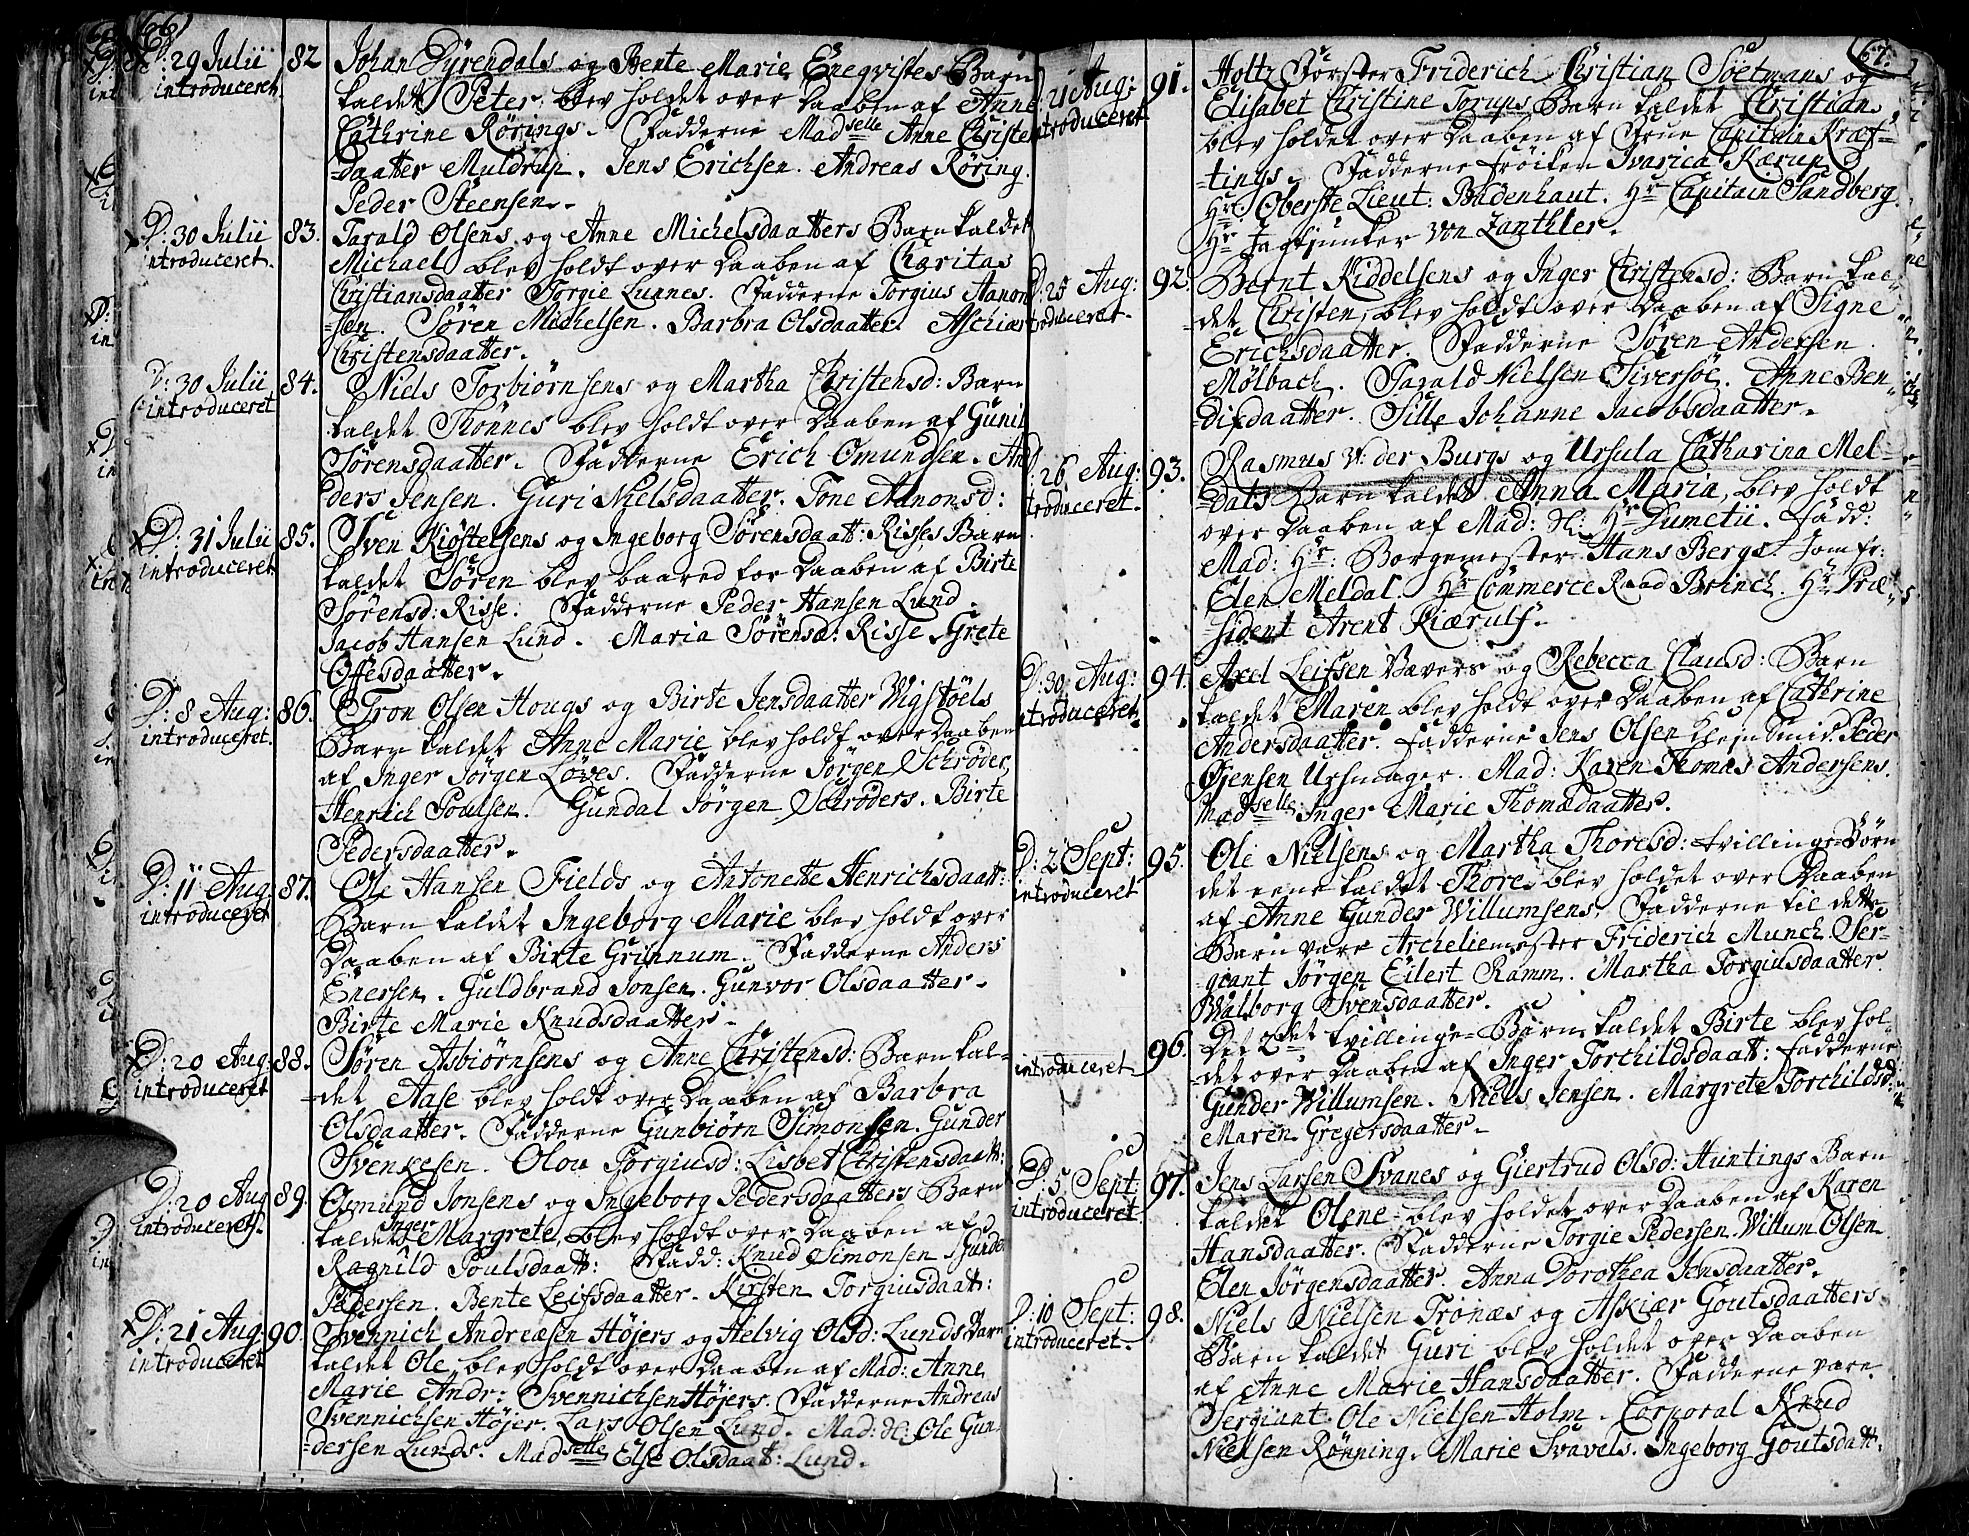 66
D: 29 Julii 82 Johan Dyrendals og Bente Marie Eneqvistes Barn
introduceret. kaldet Peter, blev holdet over Daaben af Anne
Cathrine Rörings. Fadderne Madselle Anne Christen
=daatter Muldrup. Jens Erichsen. Andreas Röring.
Peder Steensen.
D: 30 Julii 83. Tarald Olsens og Anne Michelsdaatters Barn kaldet
introduceret. Michael blev holdt over Daaben af Charitas
Christiansdaatter Torgie Lunnes. Fadderne Torgius Aanon
=sen. Sören Michelsen. Barbra Olsdaatter. Aschiær
Christensdaatter.
D: 30 Julii 84. Niels Torbiörnsens og Martha Christensd: Barn
introduceret kaldet Thönnes blev holdt over Daaben af Gunil
Sörensdaatter. Fadderne Erich Omundsen. An
ders Jensen. Guri Nielsdaatter. Tone Aanonsd:
D: 31 Julii 85. Sven Kiöstelsens og Ingeborg Sörensdaat: Risses Barn
introduceret. kaldet Sören blev baared for Daaben af Birte
Sörensd: Risse. Fadderne Peder Hansen Lund.
Jacob Hansen Lund. Maria Sörensd: Risse. Grete
Offesdaatter.
D: 8 Aug: 86. Tron Olsen Hougs og Birte Jensdaatter Vigstöels
introduceret. Barn kaldet Anne Marie blev holdt over Daaben
af Inger Jörgen Löves. Fadderne Jörgen Schröder,
Henrich Poulsen. Gundal Jörgen Schröders. Birte
Pedersdaatter.
D: 11 Aug: 87. Ole Hansen Fields og Antonette Henrichsdaat:
introduceret Barn kaldet Ingeborg Marie blev holdt over
Daaben af Birte Grinnum. Fadderne Anders
Enersen. Guldbrand Jonsen. Gunvor Olsdaatter.
Birte Marie Knudsdaatter.
D: 20 Aug: 88. Sören Asbiörnsens og Anne Christensd: Barn kal=
introduceret =det Aase blev holdt over Daaben af Barbra
Olsdaatter. Fadderne Gunbiörn Simonsen. Gunder
Svenkesen. Olou Torgiusd: Lisbet Christensdaat:
D: 20 Aug 89. Osmund Jonsens og Ingeborg Pedersdaatters Barn
introduceret. kaldet Inger Margrete, blev holdt over Daaben af
Ragnild Poulsdaat: Fadd: Knud Simonsen. Gunder
Pedersen. Bente Leifsdaatter. Kirsten Torgiusdaat:
D: 21 Aug: 90. Svennich Andreæsen Höjers og Helvig Olsd: Lunds Barn
introduceret kaldet Ole blev holdt over Daaben af Mad: Anne
Marie Andr: Svennichsen Höjers. Fadderne Andreas
Svennichsen Höjer. Lars Olsen Lund. Mad: Ole Gun=
=dersen Lunds. Madselle Else Olsdaat: Lund.
67.
D: 21 Aug: 91. Holtz Förster Friderich Christian Söetmans og
introduceret Elisabet Christine Torups Barn kaldet Christian,
blev holdet over Daaben af Frue Capitain Kræf=
=tings. Fadderne Fröiken Ivarica Kærup
Hr: Oberste Lieut: Badenhaut. Hr Capitain Sandberg.
Hr Jagtjunker von Zanthier.
D: 25 Aug: 92. Bernt Kiddelsens og Inger Christensd: Barn kal=
introduceret. =det Christen, blev holdt over Daaben af Signe
Erichsdaatter. Fadderne Sören Andersen
Mølbach. Tarald Nielsen Siversöe. Anne Ben=
=dixdaatter. Sille Johanne Jacobsdaatter.
D: 26 Aug: 93. Rasmus v: der Burgs og Ursula Catharina Mel=
introduceret. =dals Barn kaldet Anna Maria, blev holdt
over Daaben af Mad: Sl: Hr Dumetii. Fadd:
Mad: Hr: Borgemester Hans Bergs. Jomfr:
Elen Meldal. Hr Commerce Raad Brinch. Hr Præ=
sident Arent Kiærulf.
D: 30 Aug: 94. Axel Leifsen Bævers og Rebecca Clausd: Barn
introduceret. kaldet Maren blev holdt over Daaben af Cathrine
Andersdaatter. Fadderne Jens Olsen Kleinsmid. Peder
Öjensen Urhmager. Mad: Karen Thomas Andersens.
Madselle: Inger Marie Thomædaatter.
D: 2 Sept: 95. Ole Nielsens og Martha Thoresd: tvillinge=Börn
introduceret det eene kaldet Thore, blev holdet over Daaben
af Anne Gunder Willumsens. Fadderne til dette
Barn vare Archeliemester Friderich Munch. Ser=
=giant Jörgen Eilert Ramm. Martha Torgiusdaatter.
Walborg Svensdaatter.
96. Det 2det tvillinge=Barn kaldet Birte blev hol=
introduceret =det over Daaben af Inger Torchildsdaat: Fadderne
Gunder Willumsen. Niels Jensen. Margrete Torchildsd:
Maren Gregersdaatter.
D: 5 Sept: 97. Jens Larsen Svanes og Giertrud Olsd: Huntings Barn
introduceret. kaldet Olene blev holdet over Daaben af Karen
Hansdaatter. Fadderne Torgie Pedersen. Willum Olsen
Elen Jörgensdaatter. Anna Dorothea Jensdaatter.
D: 10 Sept: 98. Niels Nielsen Tronæs og Askiær Goutsdaatters
introduceret. Barn kaldet Guri blev holdet over Daaben
af Anne Marie Hansdaatter. Fadderne vare
Sergiant Ole Nielsen Holm. Corporal Knud
Nielsen Rönning. Marie Svavels. Ingeborg Goutsdatt: